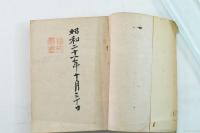 昭和二十六年十月三十日